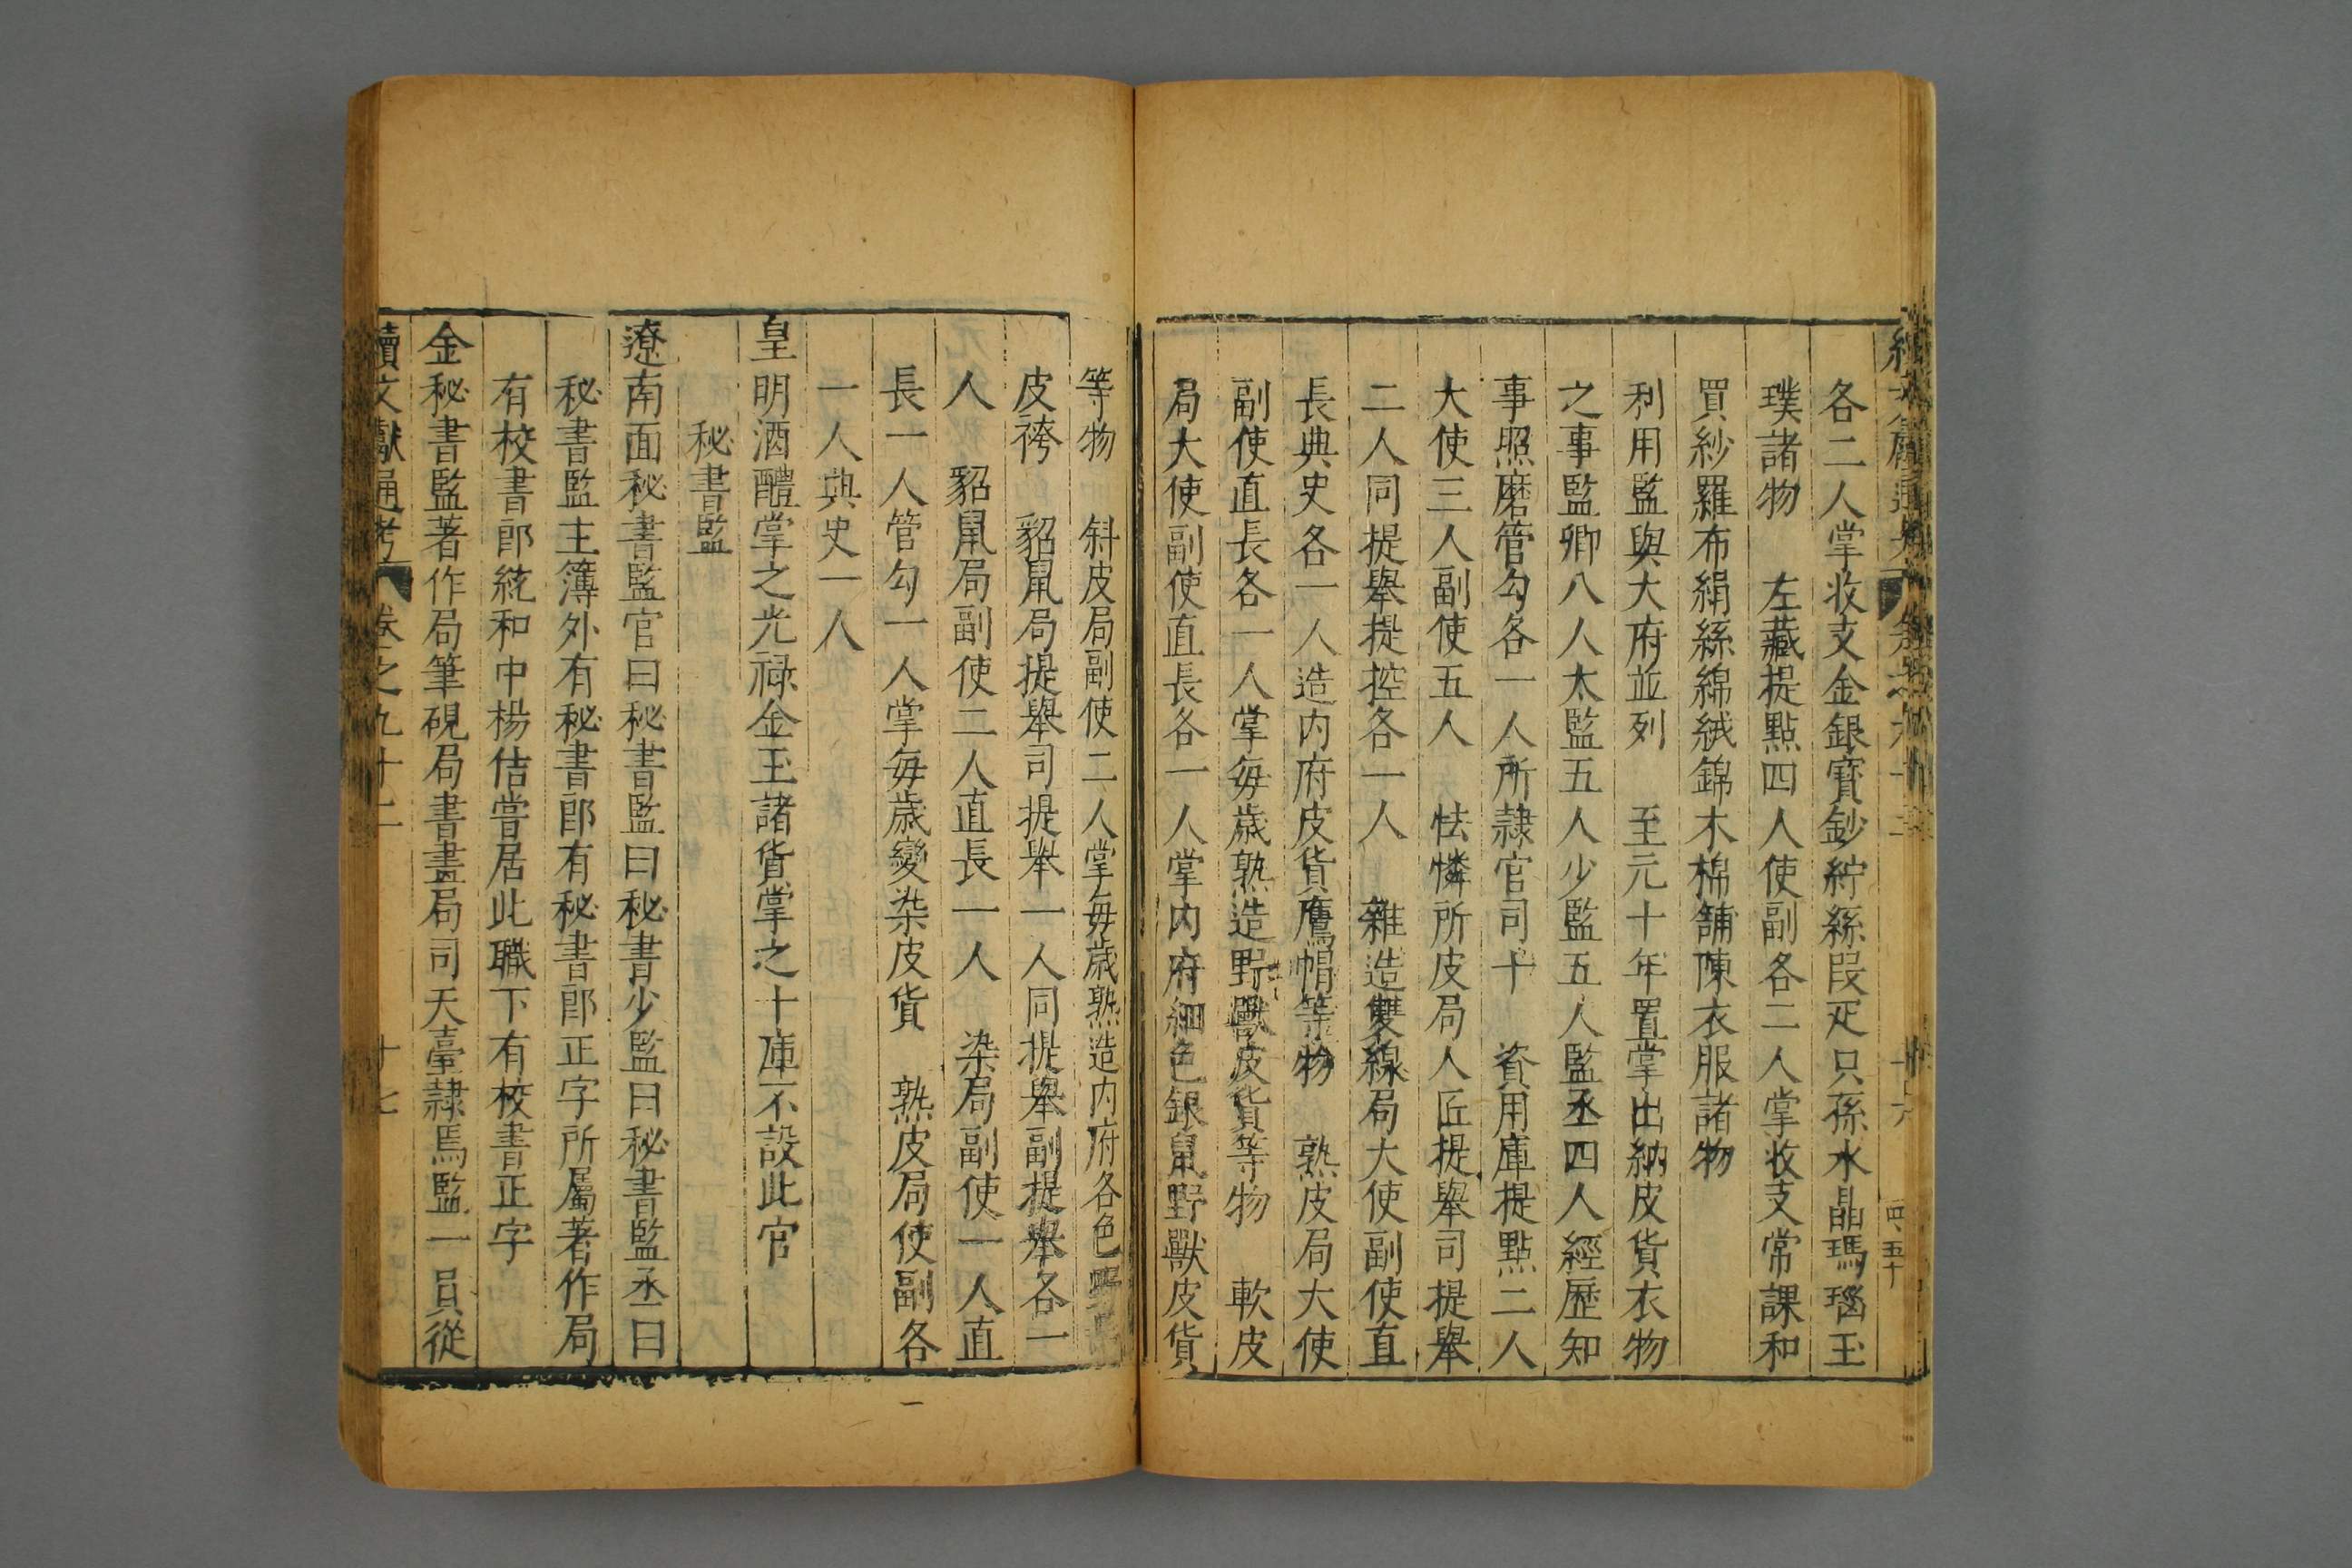 各二人掌收支金銀寳鈔紵絲叚疋只孫水晶瑪瑙玉
璞諸物　左藏提點四人使副各二人掌收支常課和
買紗羅布絹絲綿絨錦木棉舖陳衣服諸物
利用監與大府並列　至元十年置掌出納皮貨衣物
之事監卿八人太監五人少監五人監丞四人經歷知
事照磨管勾各一人所隷官司十　資用庫提點二人
大使三人副使五人　怯憐所皮局人匠提舉司提舉
二人同提舉提控各一人　雜造雙線局大使副使直
長典史各一人造内府皮貨鷹帽等物　熟皮局大使
副使直長各一人掌每歲熟造野獸皮貨等物　軟皮
局大使副使直長各一人掌内府細色銀鼠野獸皮貨
等物　斜皮局副使二人掌每歲熟造内府各色
皮袴　貂鼠局提舉司提舉一人同提舉副提舉各一
人　貂鼠局副使二人直長一人　染局副使一人直
長一人管勾一人掌每歲變染皮貨　熟皮局使副各
一人典史一人
皇明酒醴掌之光禄金玉諸貨掌之十庫不設此官
秘書監
遼南面秘書監官曰秘書監曰秘書少監曰秘書監丞曰
秘書監主簿外有秘書郎有秘書郎正字所屬著作局
有校書郎統和中楊佶嘗居此職下有校書正字
金秘書監著作局筆硯局書畫局司天臺隷焉監一員從
續文獻通考　卷之九十二　十七